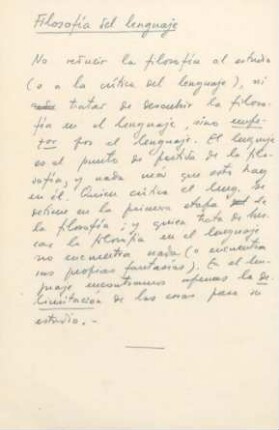 Filosofía del lenguaje
No reducir la filosofía al estudio
(o a la crítica del lenguaje), ni
tratar de descubrir la filoso-
fía en el lenguaje, sino empe-
zar por el lenguaje. El lenguaje
es el punto de partida de la filo-
sofía, y nada más que esto hay
en él. Quien critica el leng. se
detiene en la primera etapa de
la filosofía; y quien trata de bus-
car la filosofía en el lenguaje
no encuentra nada (o encuentra
sus propias fantasías). En el len-
guaje encontramos apenas la de-
limitación de las cosas para su
estudio. –